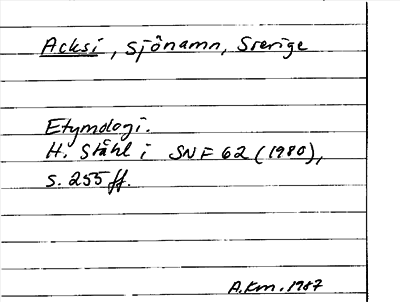 Acksi, sjönamn, Sverige
Etymologi.
H. Ståhl i SNF 62 (1980),
s. 255 ff.
A.Km. 1987